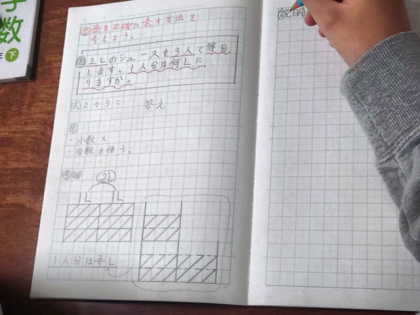 数
下
め 商を正確に表す方法を
考えよう。
問 2Lのジュースを3人で等分
します。1人分は何Lに
なりますか。
式 2÷3= 答え
・小数×
・分数を使う。
2L
1L 1L
1人分は L
説明